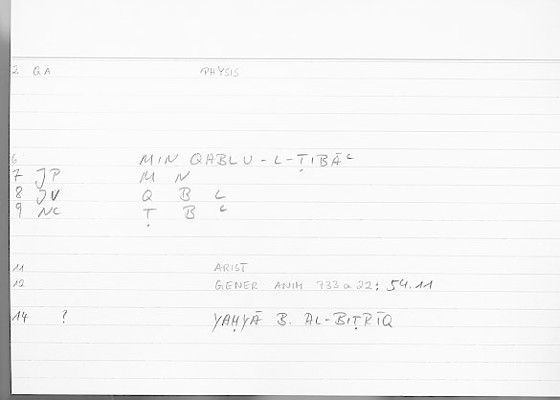 2 QA PHYSIS
6 MIN QABLU-L-ṬIBĀʿ
7 JP M N
8 JV Q B L
9 NC Ṭ B ʿ
11 ARIST
12 GENER ANIM 733a22; 54.11
14 ? YAḤYĀ B. AL-BIṬRĪQ